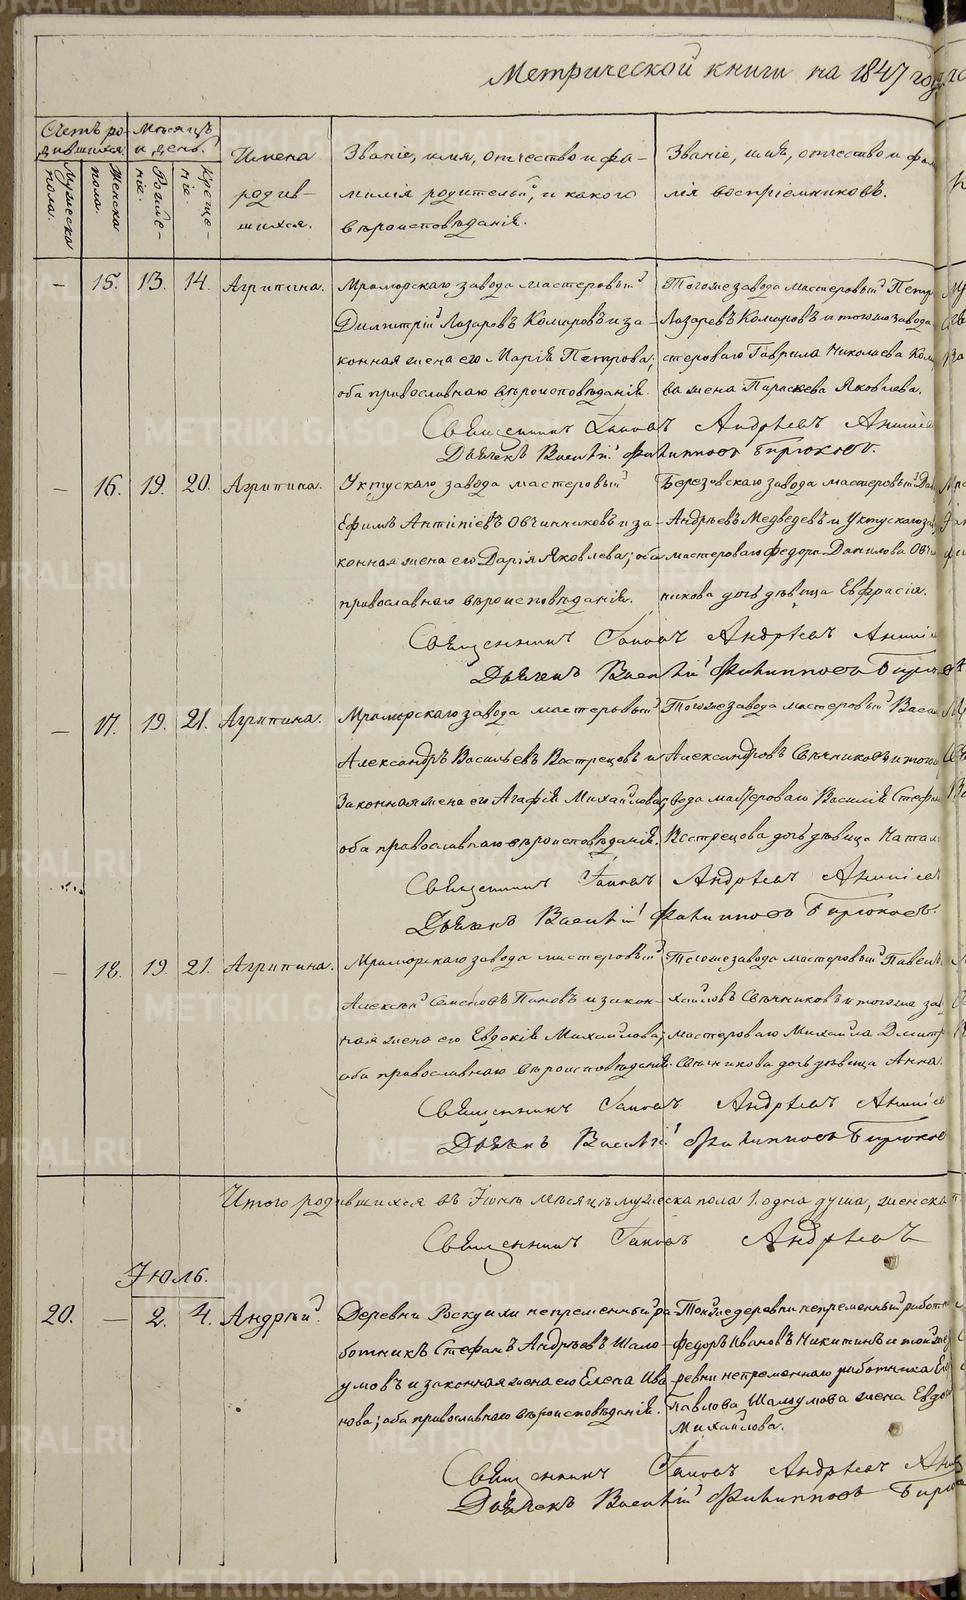 Метрической книги на 1847 год
Счетъ ро-
дившихся.
Мѣсяцъ
и день.
Мужеска
пола.
Женска
пола.
Рожде-
ніе.
Креще-
ніе.
Имена
родив-
шихся.
Званіе, имя, отчество и фа-
милія родителей, и какого
вѣроисповѣданія.
Званіе, имя, отчество и фами
лія воспріемниковъ.
— 15. 13. 14. Агрипина.
Мраморскаго завода мастеровый
Димитрій Лазаревъ Комаровъ и за-
конная жена его Марія Петрова;
оба православнаго вѣроисповѣданія.
Тогоже завода мастеровый Петръ
Лазаревъ Комаровъ и тогоже завода
стероваго Гаврила Николаева Кома
ва жена Параскева Яковлева.
Священникъ Іаковъ Андреевъ
Дьячекъ Василій Филипповъ Бирюковъ.
— 16. 19. 20. Агрипина.
Уктускаго завода мастеровый
Ефимъ Антипіевъ Овчинниковъ и за-
конная жена его Дарія Яковлева; оба
православнаго вѣроисповѣданія.
Березовскаго завода мастеровый
Андреевъ Медведевъ и Уктускаго за
мастероваго Федора Данилова Овчи
никова дочь дѣвица Евфрасія.
Священникъ Іаковъ Андреевъ
Дьячекъ Василій Филипповъ Бирюковъ
— 17. 19. 21. Агрипина.
Мраморскаго завода мастеровый
Александръ Васильевъ Вострецовъ и
законная жена его Агафія Михайлова,
оба православнаго вѣроисповѣданія.
Тогоже завода мастеровый Васил
Александровъ Свѣчниковъ и тогож
вода мастероваго Василія Стефан
Вострецова дочь дѣвица Натал
Священникъ Іаковъ Андреевъ
Дьячекъ Василій Филипповъ Бирюковъ.
— 18. 19. 21. Агрипина.
Мраморскаго завода мастеровый
Алексѣй Семеновъ Пановъ и закон-
ная жена его Евдокія Михайлова;
оба православнаго вѣроисповѣданія.
Тогоже завода мастеровый Павелъ
хайловъ Свѣчниковъ и тогоже за
мастероваго Михайла Дмитр
Свѣчникова дочь дѣвица Анна.
Священникъ Іаковъ Андреевъ
Дьячекъ Василій Филипповъ Бирюков
Итого родившихся въ Іюнѣ мѣсяцѣ мужеска пола 1. одна душа, женска
Священникъ Іаковъ Андреевъ
Іюль.
20. — 2. 4. Андрей.
Деревни Роскуихи непременный ра-
ботникъ Стефанъ Андреевъ Шало-
умовъ и законная жена его Елена Ива
нова; оба православнаго вѣроисповѣданія.
Тойже деревни непременный работн
Федоръ Ивановъ Никитинъ и тойже
ревни непременнаго работника
Павлова Шалоумова жена Евдок
Михайлова.
Священникъ Іаковъ Андреевъ
Дьячекъ Василій Филипповъ Бирю
METRIKI.GASO-URAL.RU